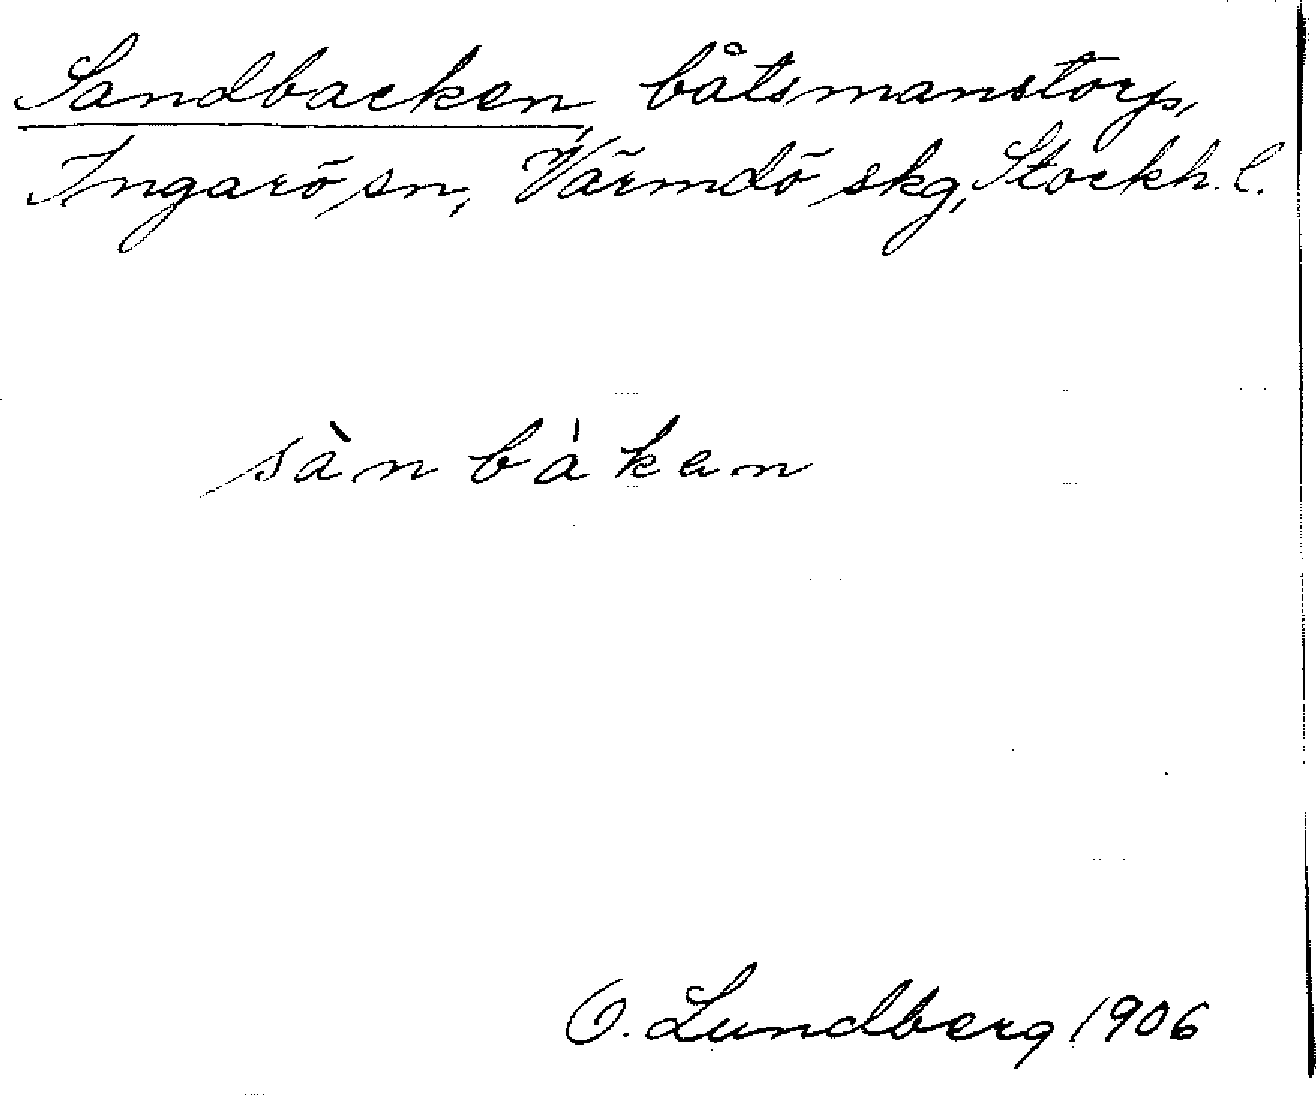 Sandbacken, båtsmanstorp,
Ingarö sn, Värmdö skg, Stockh. l.
sàn bà ken
O. Lundberg 1906